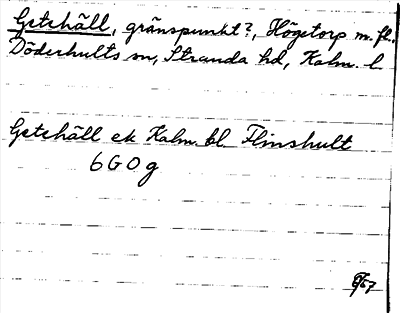 Getehäll, gränspunkt?, Högetorp m.fl.
Döderhults sn, Stranda hd, Kalm. l
Getehäll ek Kalm. bl. Flinshult
6G0g